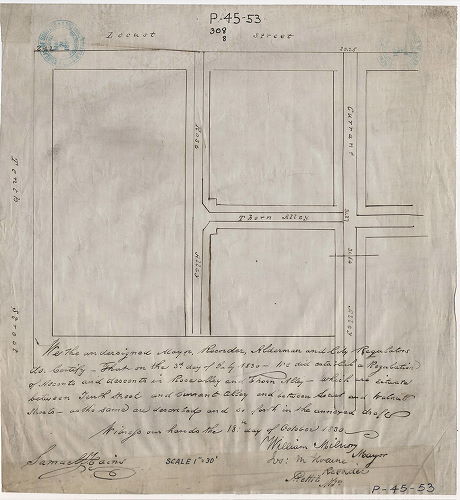 P-45-53
308
8
Locust Street
Tenth Street
Rose Alley
Currant Alley
Thorn Alley
We the undersigned Mayor, Recorder, Alderman and City Regulators
do Certify – That on the 3d day of July 1830 – We did establish a Regulation
of Ascents and descents in Rose alley and Thorn Alley – which are situate
between Tenth Street and Currant Alley and between Locust and Walnut
Streets – as the same are described and set forth in the annexed draft
Witness our hands the 18th day of October 1830
William Milnor
Mayor
Recorder
Samuel Hains
SCALE 1"=30'
P-45-53